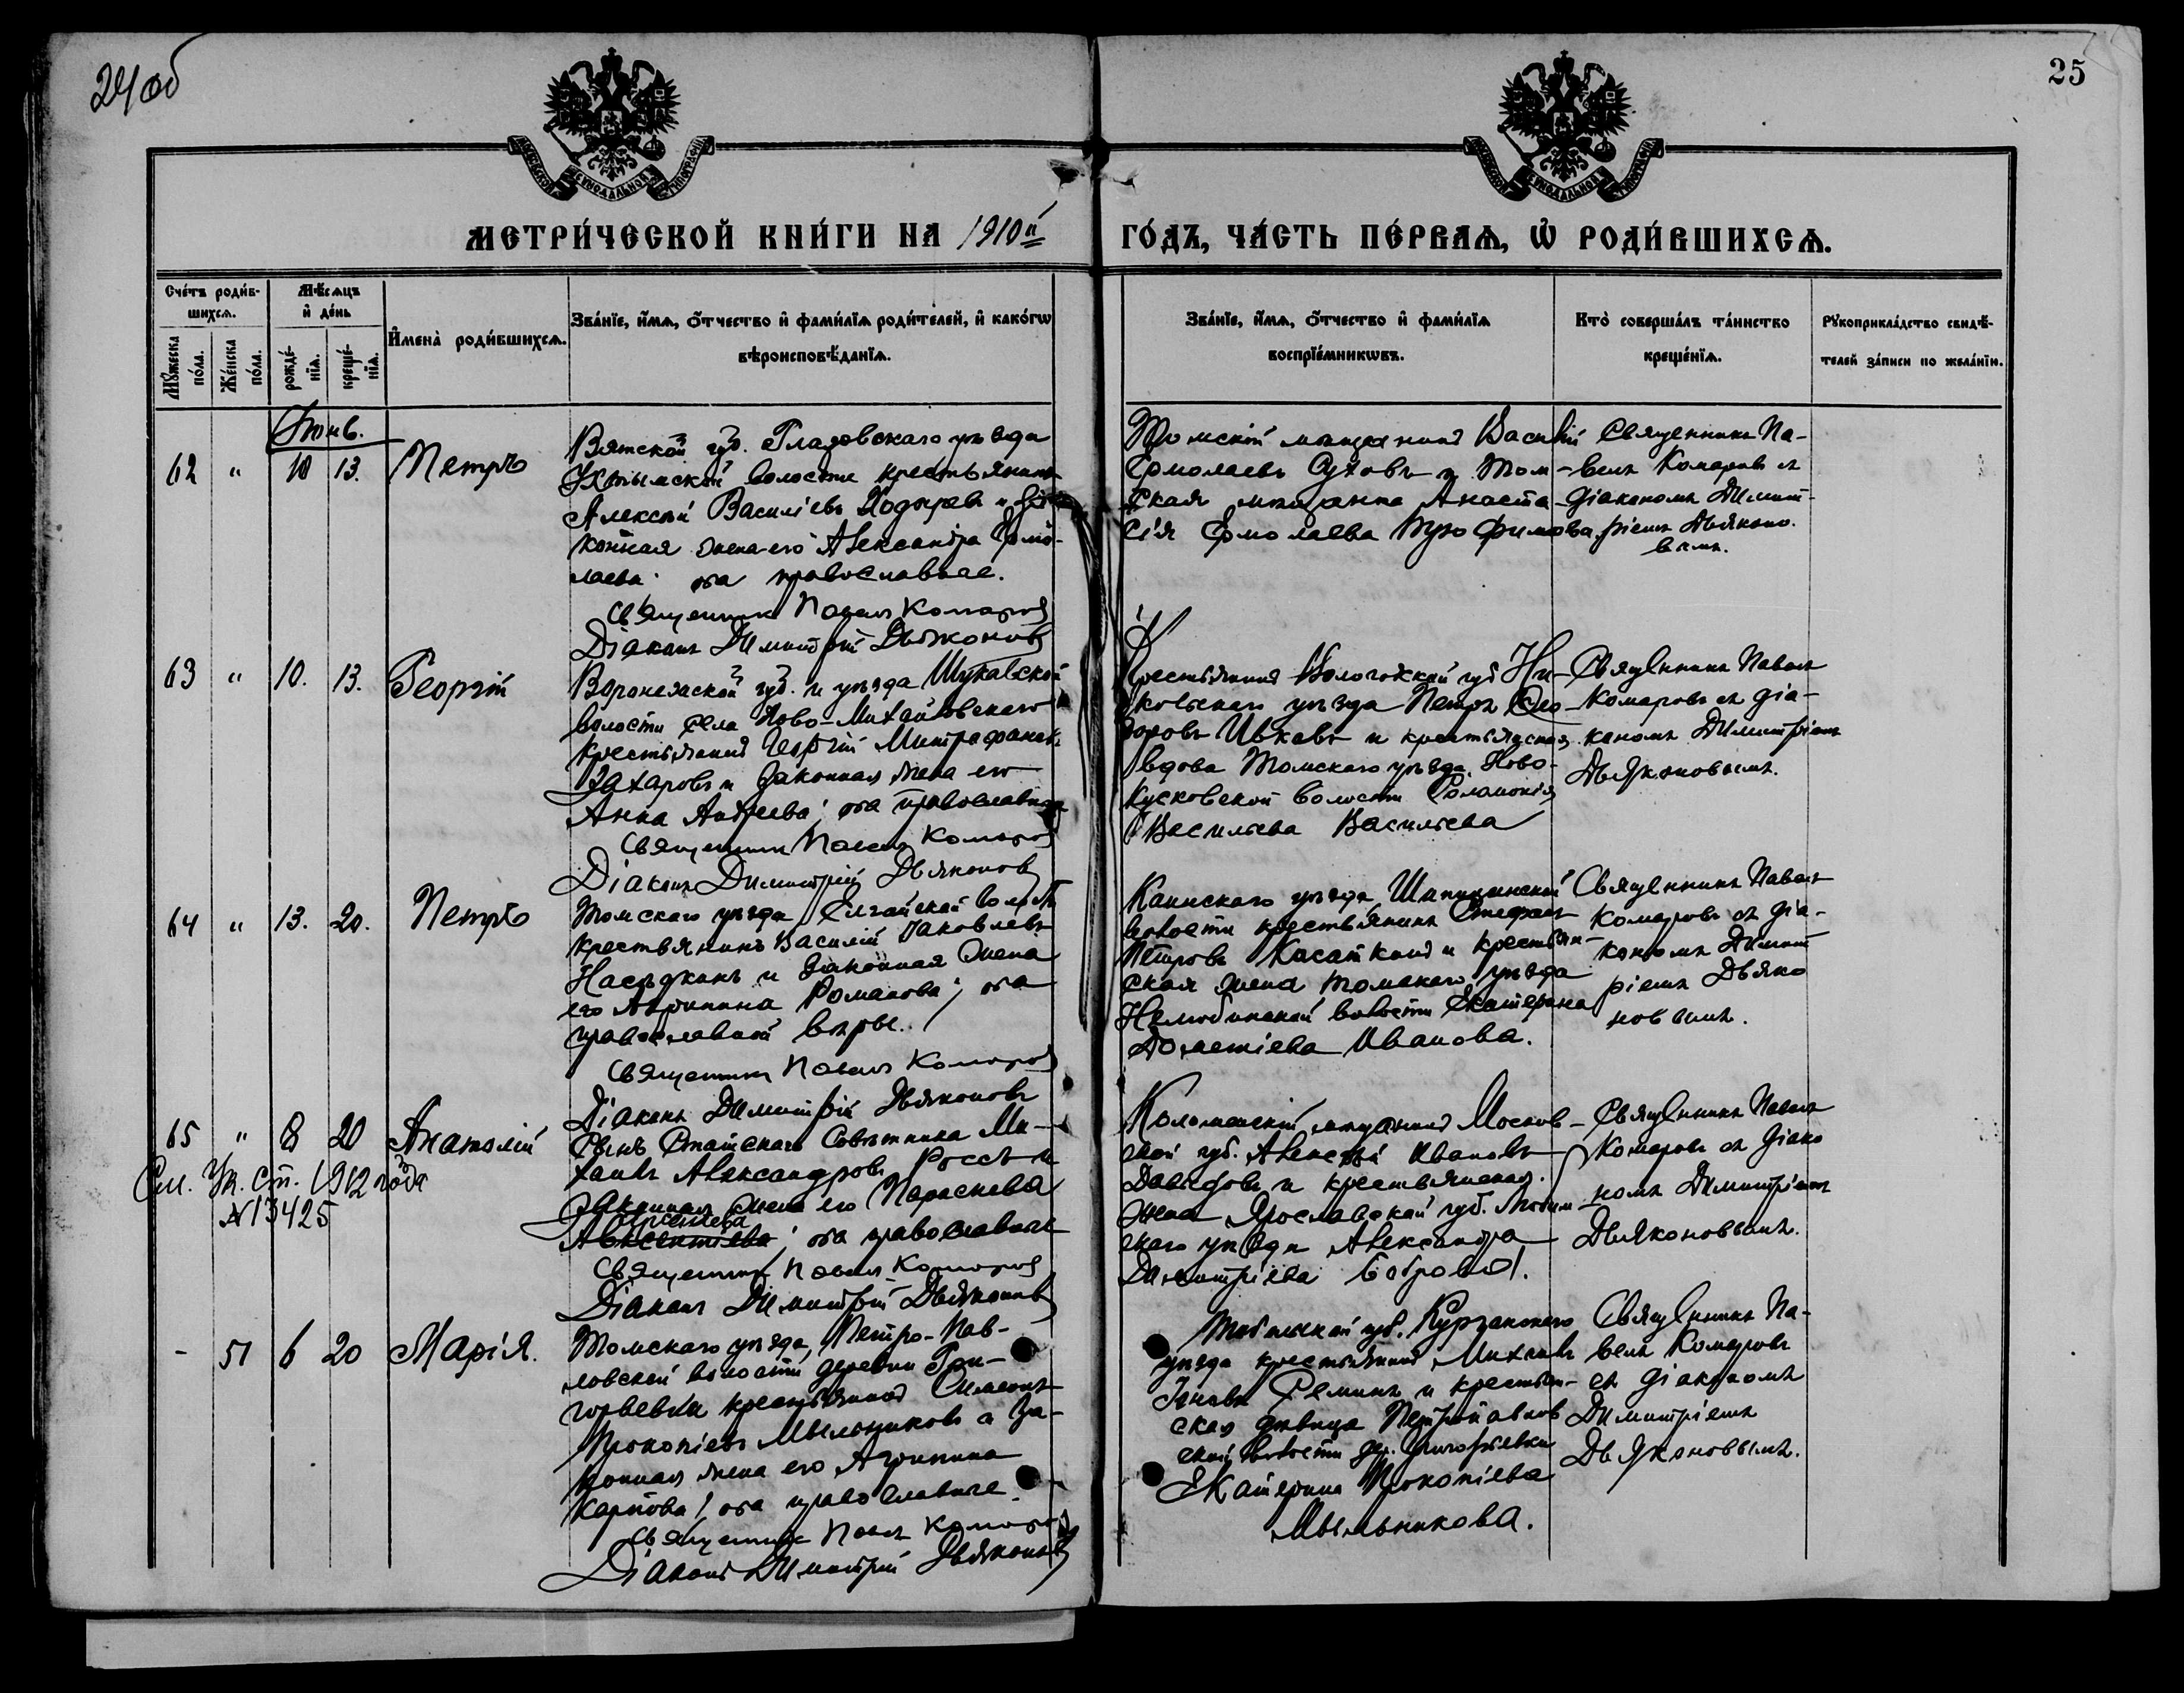 24 об
25
СѴНОДАЛЬНОЙ
СѴНОДАЛЬНОЙ
МЕТРИ́ЧЕСКОЙ КНИ́ГИ НА 1910й ГО́ДЪ, ЧА́СТЬ ПЕ́РВАѦ, Ѡ҆ РОДИ́ВШИХСѦ.
Сче́тъ роди́в-
шихсѧ.
Мꙋ́жеска по́ла.
Же́нска по́ла.
Мѣ́сѧцъ и҆ де́нь
рожде́-
нїѧ.
креще́-
нїѧ.
И҆мена̀ роди́вшихсѧ.
Зва́нїе, и҆́мѧ, ѻ҆́тчество и҆ фами́лїѧ роди́телей, и҆ како́гѡ
вѣроисповѣ́данїѧ.
Зва́нїе, и҆́мѧ, ѻ҆́тчество и҆ фами́лїѧ
воспрїе́мникѡвъ.
Кто̀ соверша́лъ та́инство
креще́нїѧ.
Рꙋкоприкла́дство свидѣ́-
телей за́писи по жела́нїю.
62 " 10 13. Петръ
Вятской губ. Глазовскаго уѣзда
Уктымской волости крестьянинъ
Алексѣй Василіевъ Ходыревъ и за-
конная жена его Александра Ермо-
лаева: оба православные.
Священникъ Павелъ Комаровъ
Діаконъ Димитрій Дьяконовъ
Томскій мѣщанинъ Василій
Ермолаевъ Суховъ и Том-
ская мѣщанка Анаста-
сія Ермолаева Трофимова
Священникъ Па-
велъ Комаровъ съ
діакономъ Димит-
ріемъ Дьяконо-
вымъ.
63 " 10. 13. Георгій
Воронежской губ. и уѣзда
волости села Ново-Михайловскаго
крестьянинъ Георгій Митрофановъ
Захаровъ и законная жена его
Анна Андреева; оба православные
Священникъ Павелъ Комаровъ
Діаконъ Димитрій Дьяконовъ
Крестьянинъ Вологодской губ Ни-
кольскаго уѣзда Петръ Ѳео-
доровъ Ивковъ и крестьянская
вдова Томскаго уѣзда Ново-
Кусковской волости Соломонія
Васильева Васильева
Священникъ Павелъ
Комаровъ съ діа-
кономъ Димитріемъ
Дьяконовымъ.
64 " 13. 20. Петръ
Томскаго уѣзда Елгайской волости
крестьянинъ Василій Яковлевъ
Насѣдкинъ и законная жена
его Агрипина Романова; оба
православной вѣры.
Священникъ Павелъ Комаровъ
Діаконъ Димитрій Дьяконовъ
Каинскаго уѣзда
волости крестьянинъ Стефанъ
Петровъ Касаткинъ и крестьян-
ская жена Томскаго уѣзда
Нелюбинской волости Екатерина
Дометіева Иванова.
Священникъ Павелъ
Комаровъ съ діа-
кономъ Димит
ріемъ Дьяко
новымъ.
65 " 8 20 Анатолій
См. Ук. Ст. 1912 года
№13425
Сынъ Статскаго Совѣтника Ми-
хаилъ Александровъ Россъ и
законная жена его Параскева
Авксентіева; оба православные
Священникъ Павелъ Комаровъ
Діаконъ Димитрій Дьяконовъ
Коломенскій мѣщанинъ Москов-
ской губ. Алексѣй Ивановъ
Давыдовъ и крестьянская
жена Ярославской губ. Любим-
скаго уѣзда Александра
Димитріева Боброва.
Священникъ Павелъ
Комаровъ съ діако
номъ Димитріемъ
Дьяконовымъ.
- 51 6 20 Марія.
Томскаго уѣзда Петро-Пав-
ловской волости деревни Гри-
горьевки крестьянинъ Симеонъ
Прокопіевъ Мыльниковъ и за-
конная жена его Агрипина
Карпова; оба православные.
Священникъ Павелъ Комаровъ
Діаконъ Димитрій Дьяконовъ
Тобольской губ. Курганскаго
уѣзда крестьянинъ Михаилъ
Семинъ и крестьян-
ская дѣвица Петропавлов
ской волости дер. Григорьевки
Екатерина Прокопіева
Мыльникова.
Священникъ Па-
велъ Комаровъ
съ діакономъ
Димитріемъ
Дьяконовымъ.